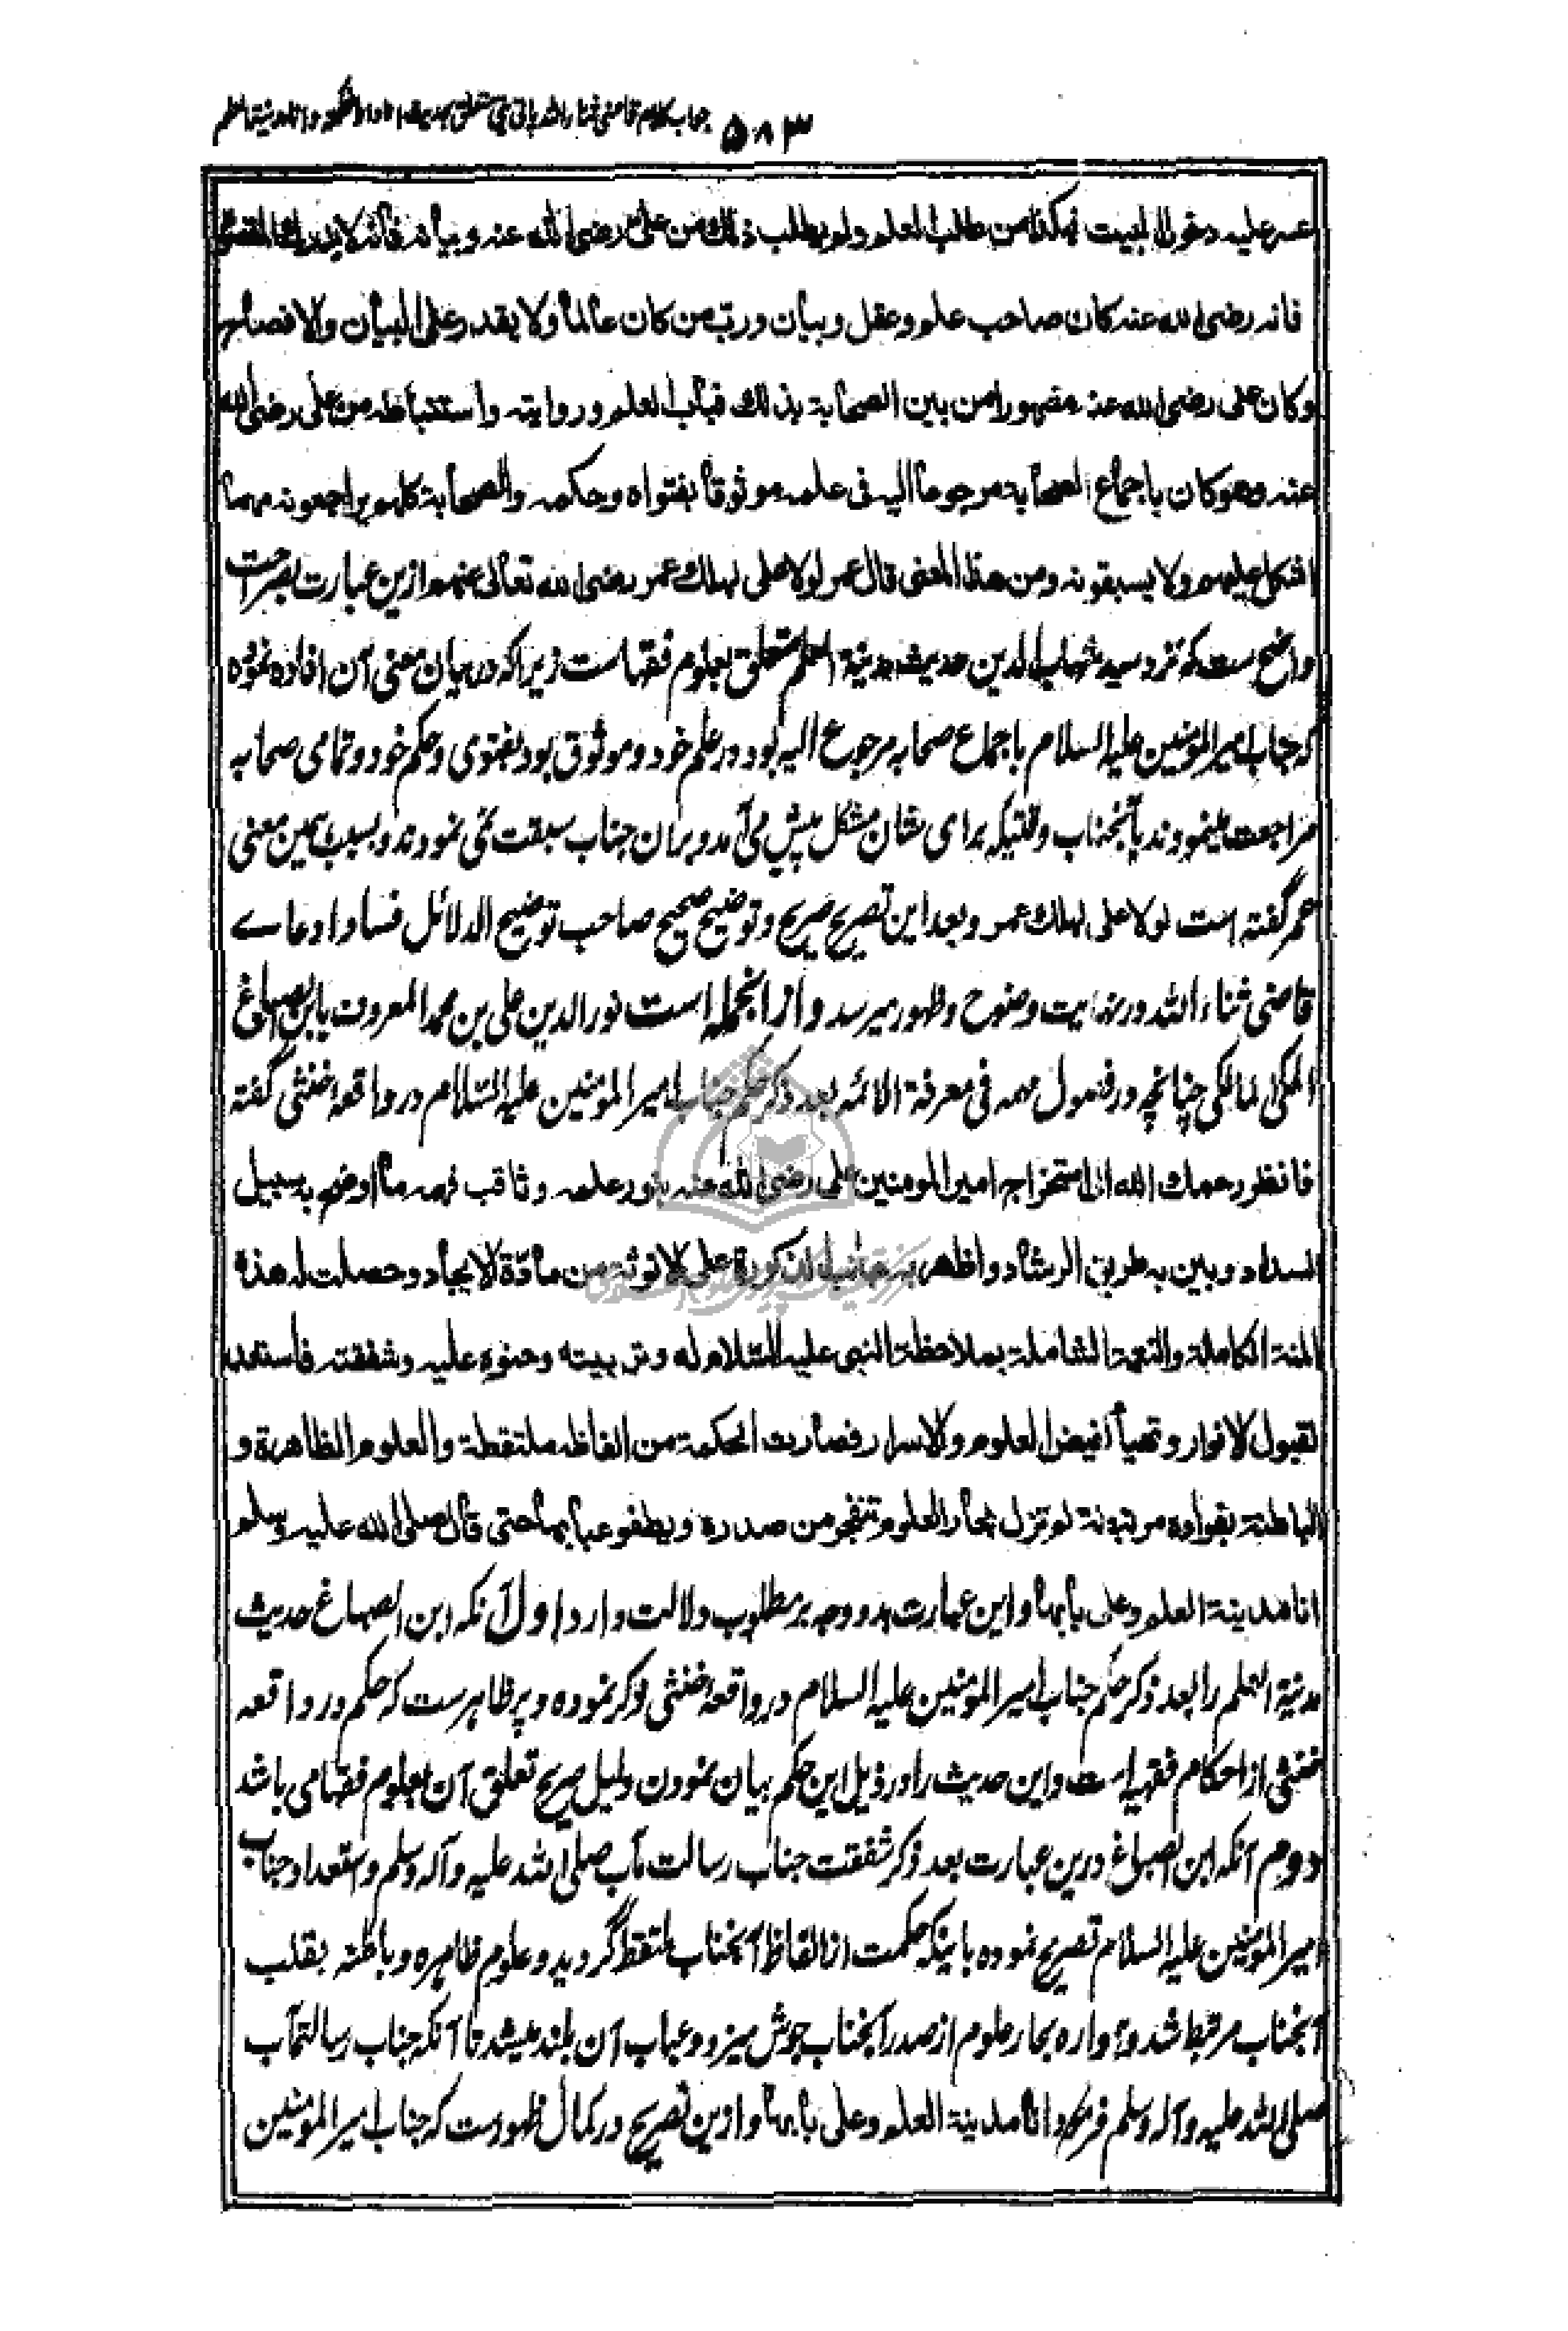 ۵۸۳ جواب کلام قاضی ثناء الله پانی پتی متعلق بحدیث انا دار الحکمة و انا مدینة العلم
عسر علیه دخول البیت فهکذا من طلب العلم ولم یطلب ذلک من علی رضی الله عنه وبیانه فانه لا یدرک المقصود
فانه رضی الله عنه کان صاحب علم وعقل وبیان ورب من کان عالما ولا یقدر علی البیان والافصاح
وکان علی رضی الله عنه مشهورا من بین الصحابة بذلک فباب العلم وروایته واستنباطه من علی رضی الله
عنه وهو کان باجماع الصحابة مرجوعا الیه فی علمه موثوقا بفتواه وحکمه والصحابة کلهم یراجعونه مهما
اشکل علیهم ولا یسبقونه ومن هذا المعنی قال عمر لولا علی لهلک عمر رضی الله تعالی عنهم ازین عبارت بصراحت
واضح ست که نزد سید شهاب الدین حدیث مدینة العلم متعلق بعلوم فقهاست زیرا که در بیان معنی آن افاده نموده
که جناب امیر المؤمنین علیه السلام باجماع صحابه مرجوع الیه بود در علم خود وموثوق بود بفتوی وحکم خود وتمامی صحابه
مراجعت مینمودند بآنجناب وقتیکه برای شان مشکل پیش می آمد وبران جناب سبقت نمی نمودند وبسبب همین معنی
عمر گفته است لولا علی لهلک عمر وبعد این تصریح صریح وتوضیح صحیح صاحب توضیح الدلائل فساد ادعاے
قاضی ثناء الله در نهایت وضوح وظهور میرسد وازانجمله است نور الدین علی بن محمد المعروف بابن الصباغ
المکی المالکی چنانچه در فصول مهمه فی معرفة الائمه بعد ذکر حکم جناب امیر المؤمنین علیه السلام در واقعه خنثی گفته
فانظر رحمک الله الی استخراج امیر المومنین علی رضی الله عنه بنور علمه وثاقب فهمه ما اوضح به سبیل
السداد وبین به طریق الرشاد واظهر به جانب الذکورة علی الانوثة من مادة الایجاد وحصلت له هذه
المنة الکاملة والنعمة الشاملة بملاحظة النبی علیه السلام له وتربیته وحنوه علیه وشفقته فاستعد
لقبول الانوار وتهیأ لفیض العلوم والاسرار فصارت الحکمة من الفاظه ملتقطة والعلوم الظاهرة و
الباطنة بفؤاده مرتبطة لم تزل بحار العلوم تتفجر من صدره ویطفو عبابها حتی قال صلی الله علیه وسلم
انا مدینة العلم وعلی بابها واین عبارت بدو وجه بر مطلوب دلالت دارد اول آنکه ابن الصباغ حدیث
مدینة العلم را بعد ذکر حکم جناب امیر المومنین علیه السلام در واقعه خنثی ذکر نموده وپر ظاهرست که حکم در واقعه
خنثی از احکام فقهیه است واین حدیث را در ذیل این حکم بیان نمودن دلیل صریح تعلق آن بعلوم فقها می باشد
دوم آنکه ابن الصباغ درین عبارت بعد ذکر شفقت جناب رسالت مآب صلی الله علیه وآله وسلم واستعداد جناب
امیر المومنین علیه السلام تصریح نموده باینکه حکمت از الفاظ آنجناب ملتقط گردید وعلوم ظاهره وباطنه بقلب
آنجناب مرتبط شد وهمواره بحار علوم از صدر آنجناب جوش میزد وعباب آن بلند میشد تا آنکه جناب رسالتمآب
صلی الله علیه وآله وسلم فرمود انا مدینة العلم وعلی بابها وازین تصریح در کمال ظهورست که جناب امیر المومنین